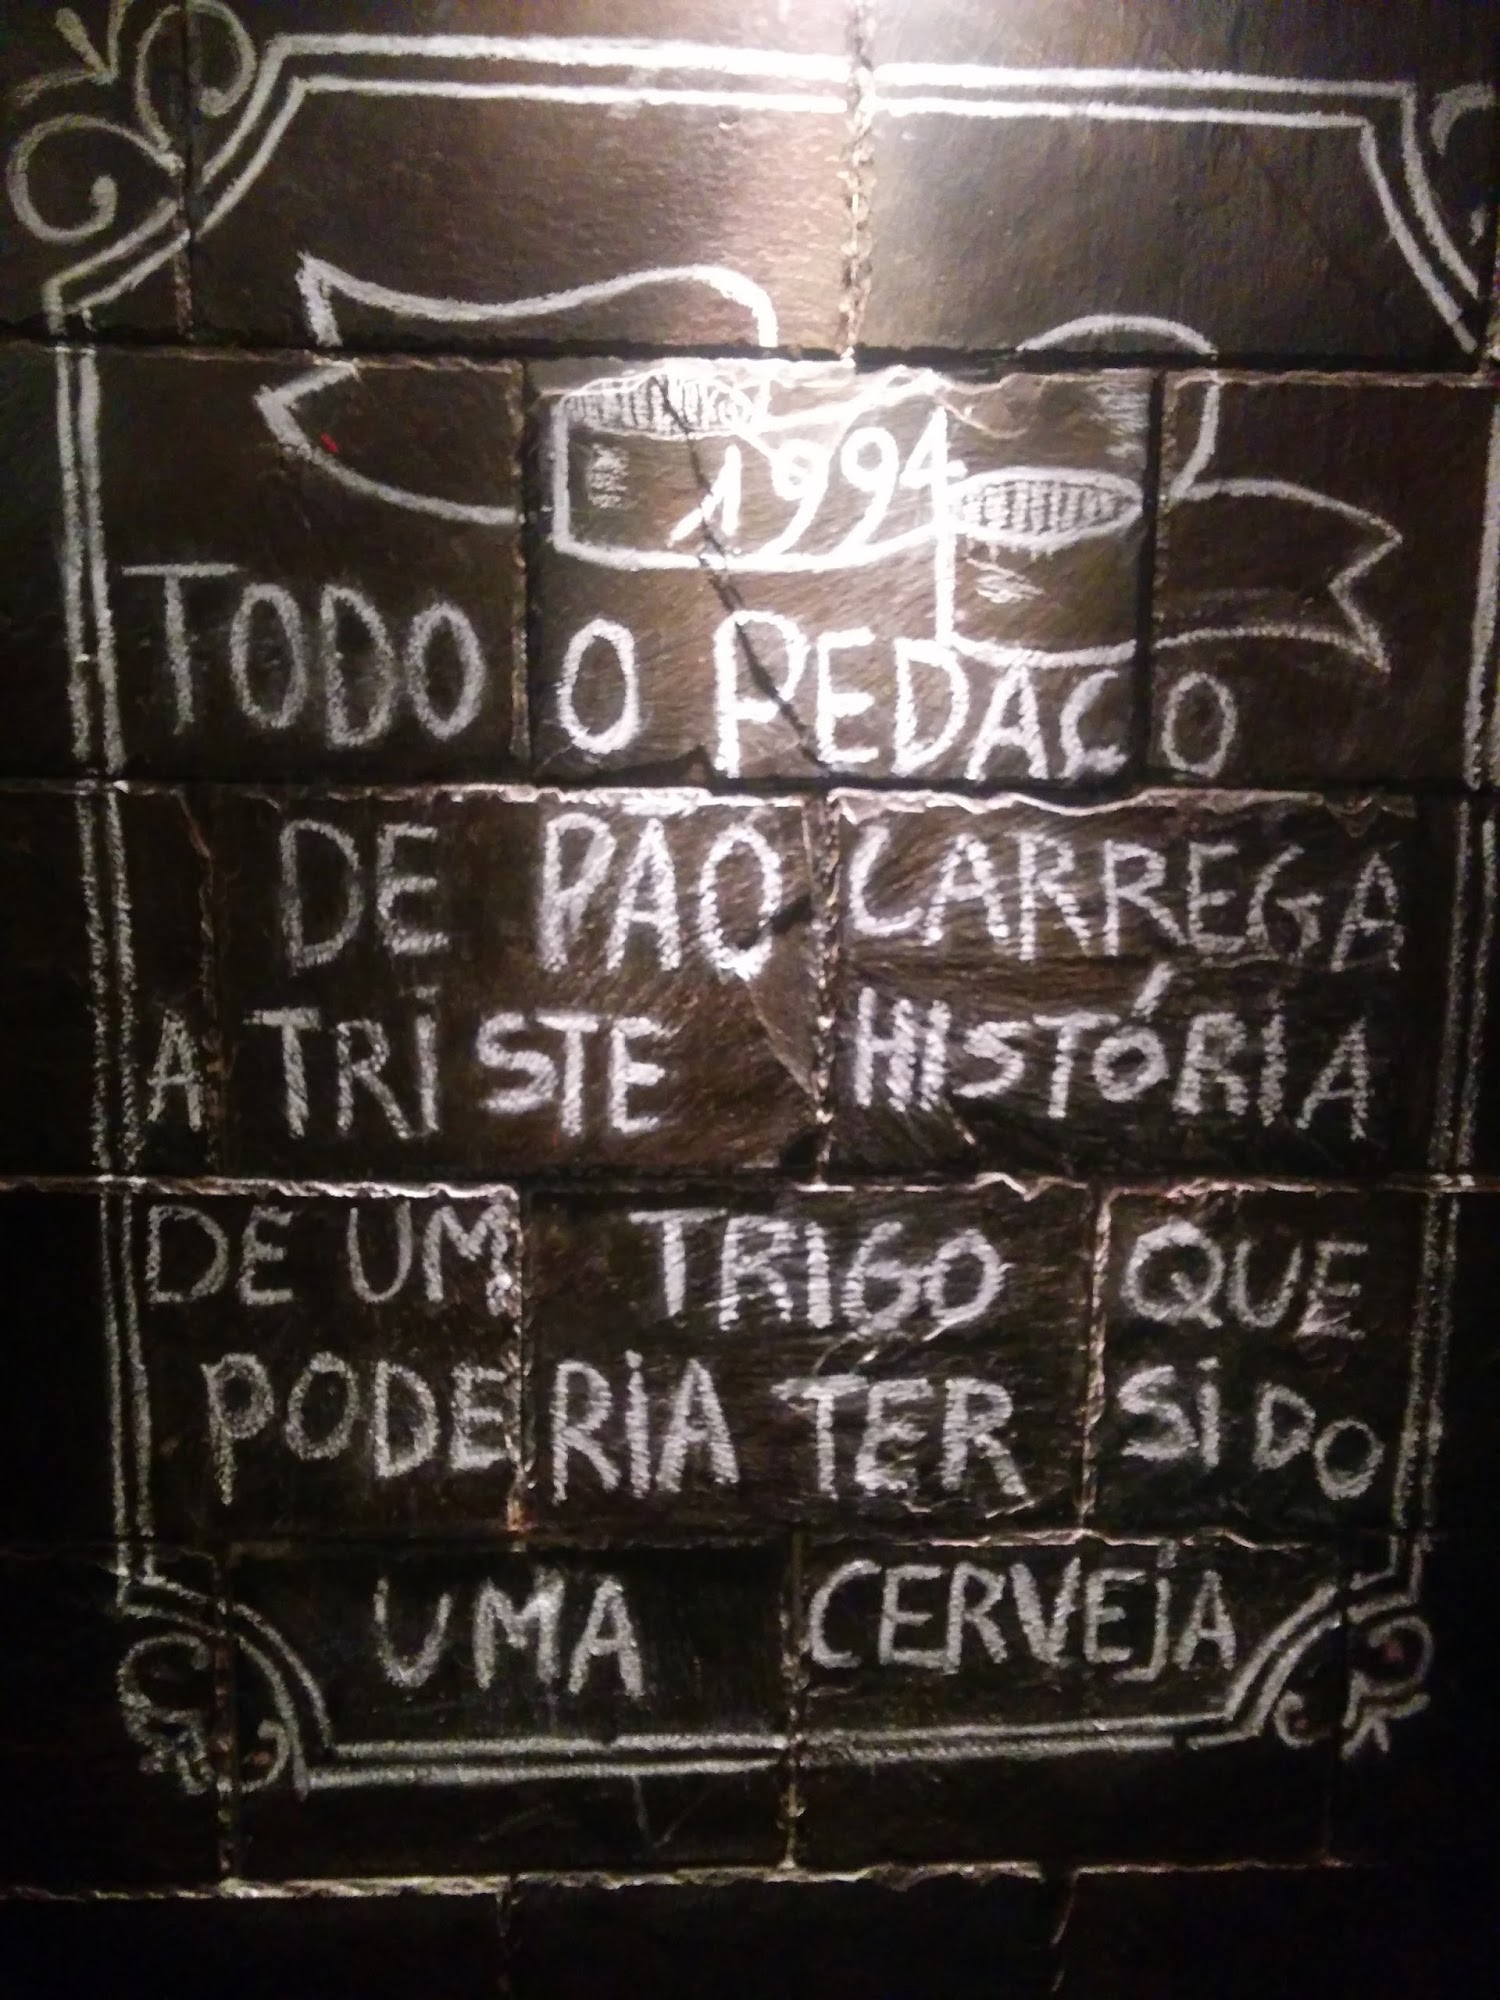 1994
TODO O PEDAÇO
DE PÃO CARREGA
A TRISTE HISTÓRIA
DE UM TRIGO QUE
PODERIA TER SIDO
UMA CERVEJA